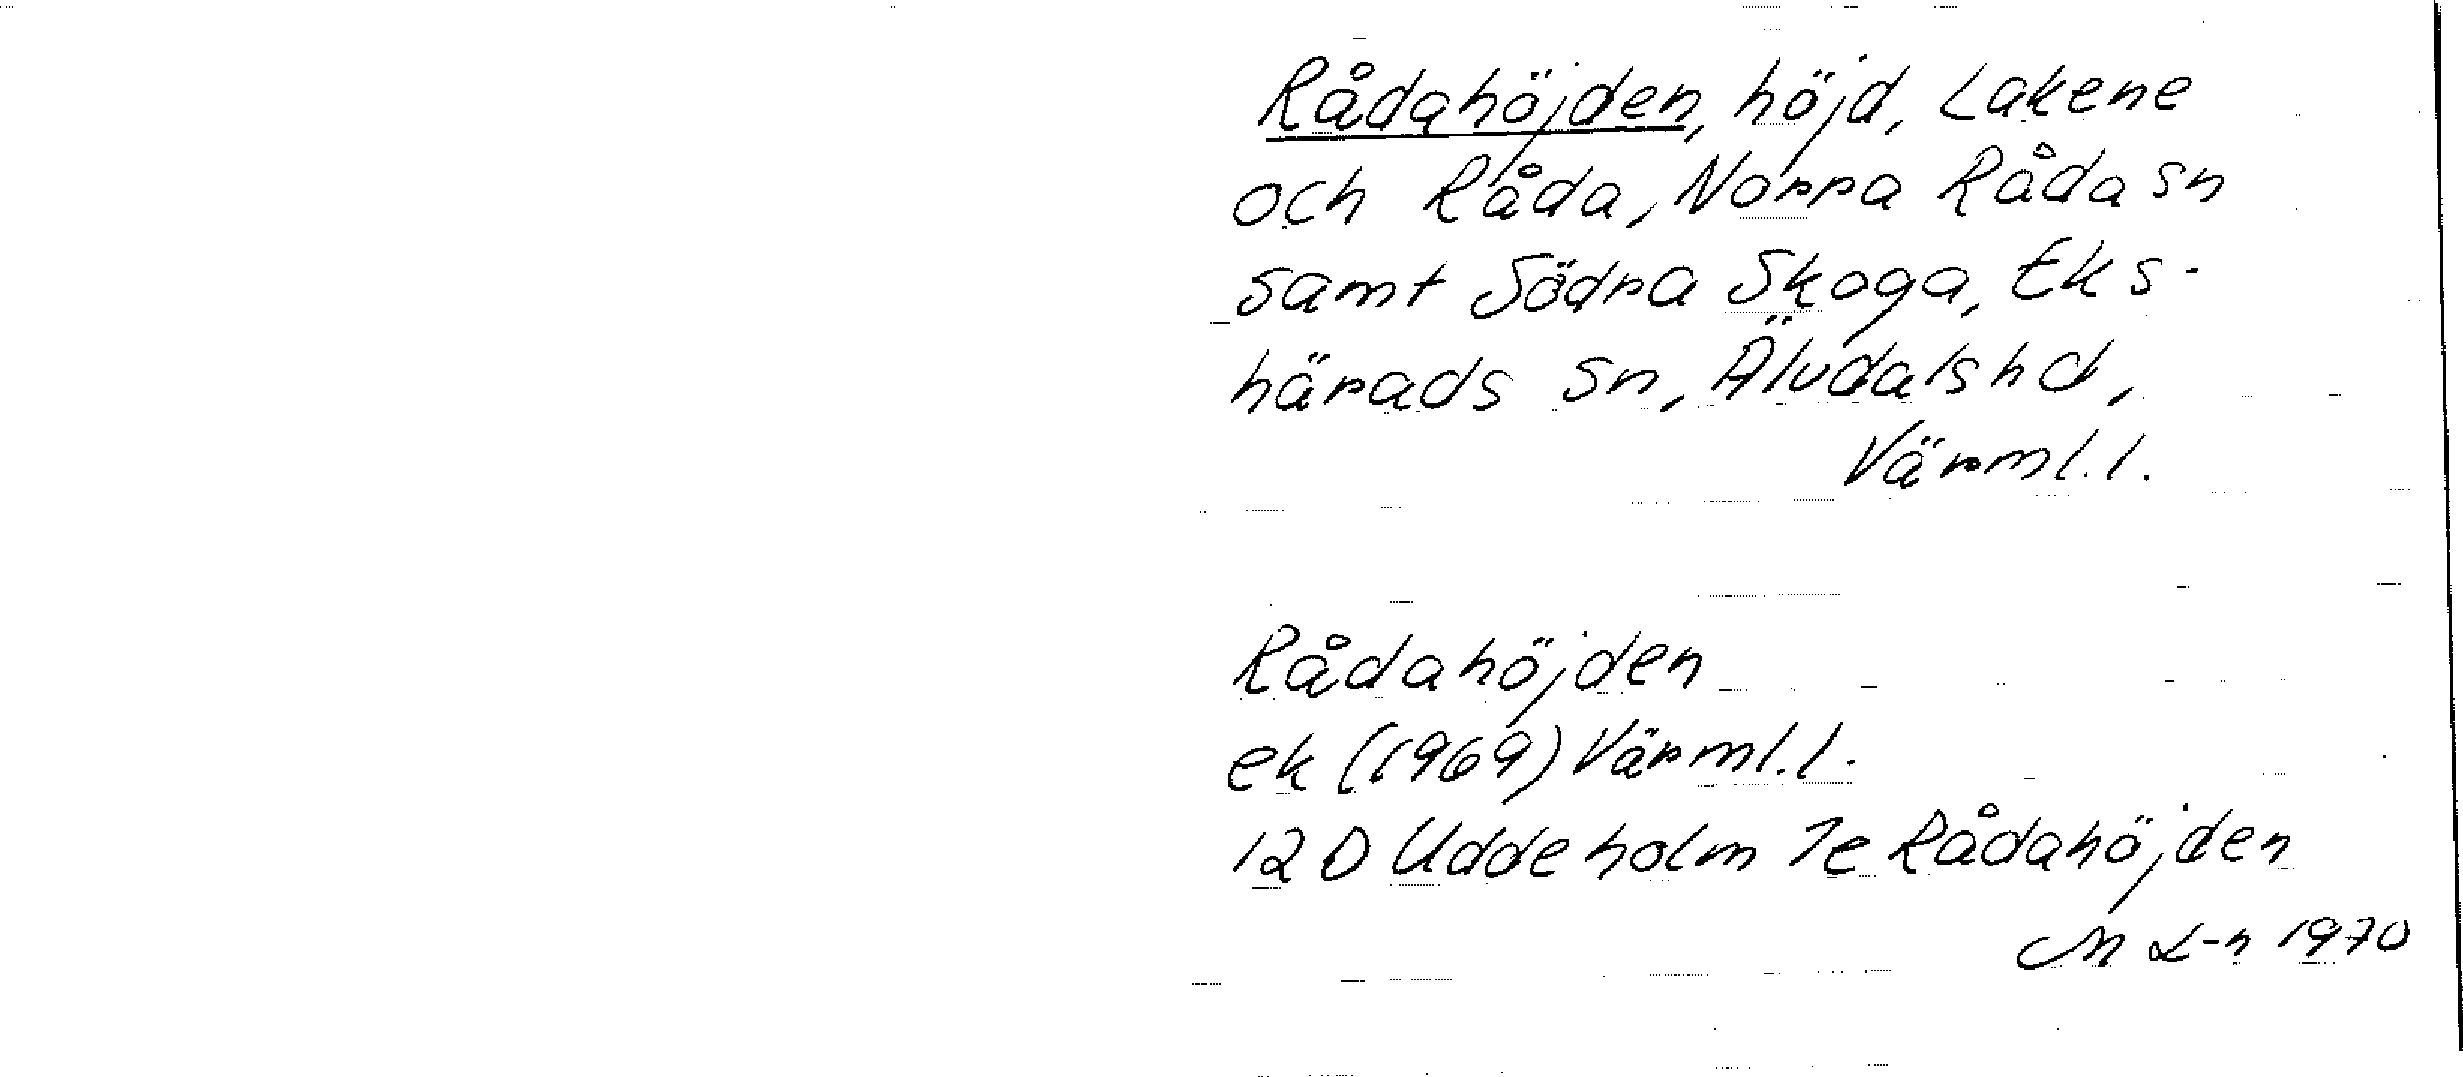 Rådahöjden, höjd, Lakene
och Råda, Norra Råda sn
samt Södra Skoga, Eks-
härads sn, Älvdals hd,
Värml. l.
Rådahöjden
ek (1969) Värml. l.
12 D Uddeholm 7e Rådahöjden
M L-n 1970